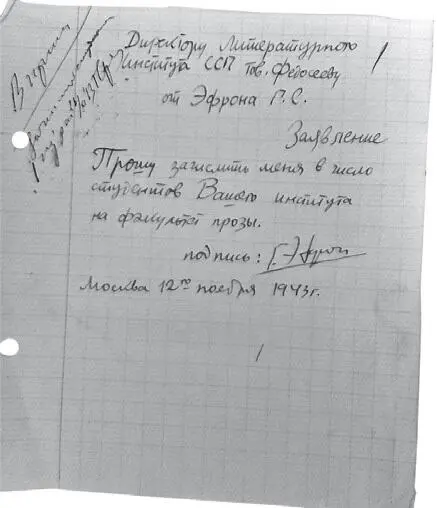 В приказ
Директору Литературного
Института ССП тов. Федосееву
от Эфрона Г. С.
Заявление
Прошу зачислить меня в число
студентов Вашего института
на факультет прозы.
подпись: Г. Эфрон
Москва 12го ноября 1943г.